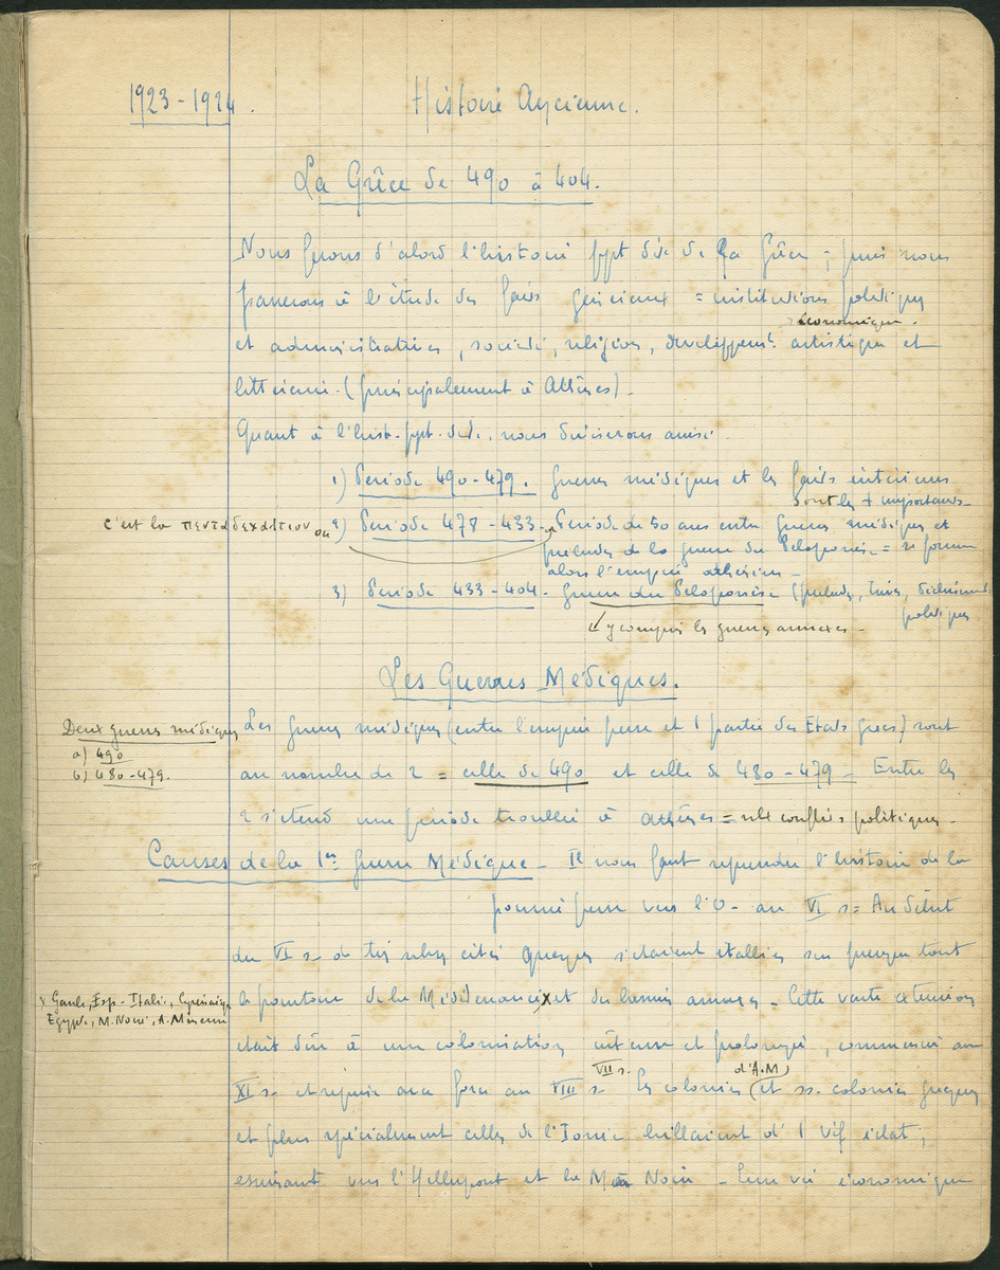 1923-1924.
Histoire Ancienne.
La Grèce de 490 à 404.
Nous ferons d'abord l'histoire ppt dite de la Grèce ; puis nous
passerons à l'étude des faits généraux = institutions politiques
économique.
et administratives, société, religion, développemt. artistique et
littéraire. (principalement à Athènes).
Quant à l'hist. ppt. dite, nous diviserons ainsi.
1) Période 490-479. Guerres médiques et les faits intérieurs
sont les + importants.
c'est la πεντα
ou 2) Période 478-433. Période de 50 ans entre guerres médiques et
préludes de la guerre du Péloponèse = se forme
alors l'empire athénien.
3) Période 433-404. Guerre du Péloponèse (préludes,
politiques
y compris les guerres annexes.
Les Guerres Médiques.
Deux guerres médiques
a) 490
b) 480-479.
Les guerres médiques (entre l'empire perse et 1 partie des Etats grecs) sont
au nombre de 2 = celle de 490 et celle de 480-479. Entre les
2 s'étend une période troublée à Athènes = nbx conflits politiques.
Causes de la 1ère Guerre Médique. Il nous faut reprendre l'histoire de la
poussée perse vers l'O. au VI s = Au début
du VI s. de très nbses cités grecques s'étaient établies sur presque tout
le pourtour de la Méditerranée x et des bassins annexes. Cette vaste extension
x Gaule, Esp. Italie, Cyrénaïque
Egypte, M. Noire, A. Mineure
était dûe à une colonisation intense et prolongée, commencée au
VII s.
d'A.M
XI s. et reprise avec force au VIII s. Les colonies (et ss. colonies grecques
et plus spécialement celles de l'Ionie brillaient d'1 vif éclat ;
essaimant vers l'Hellespont et la Mer Noire. Leur vie économique